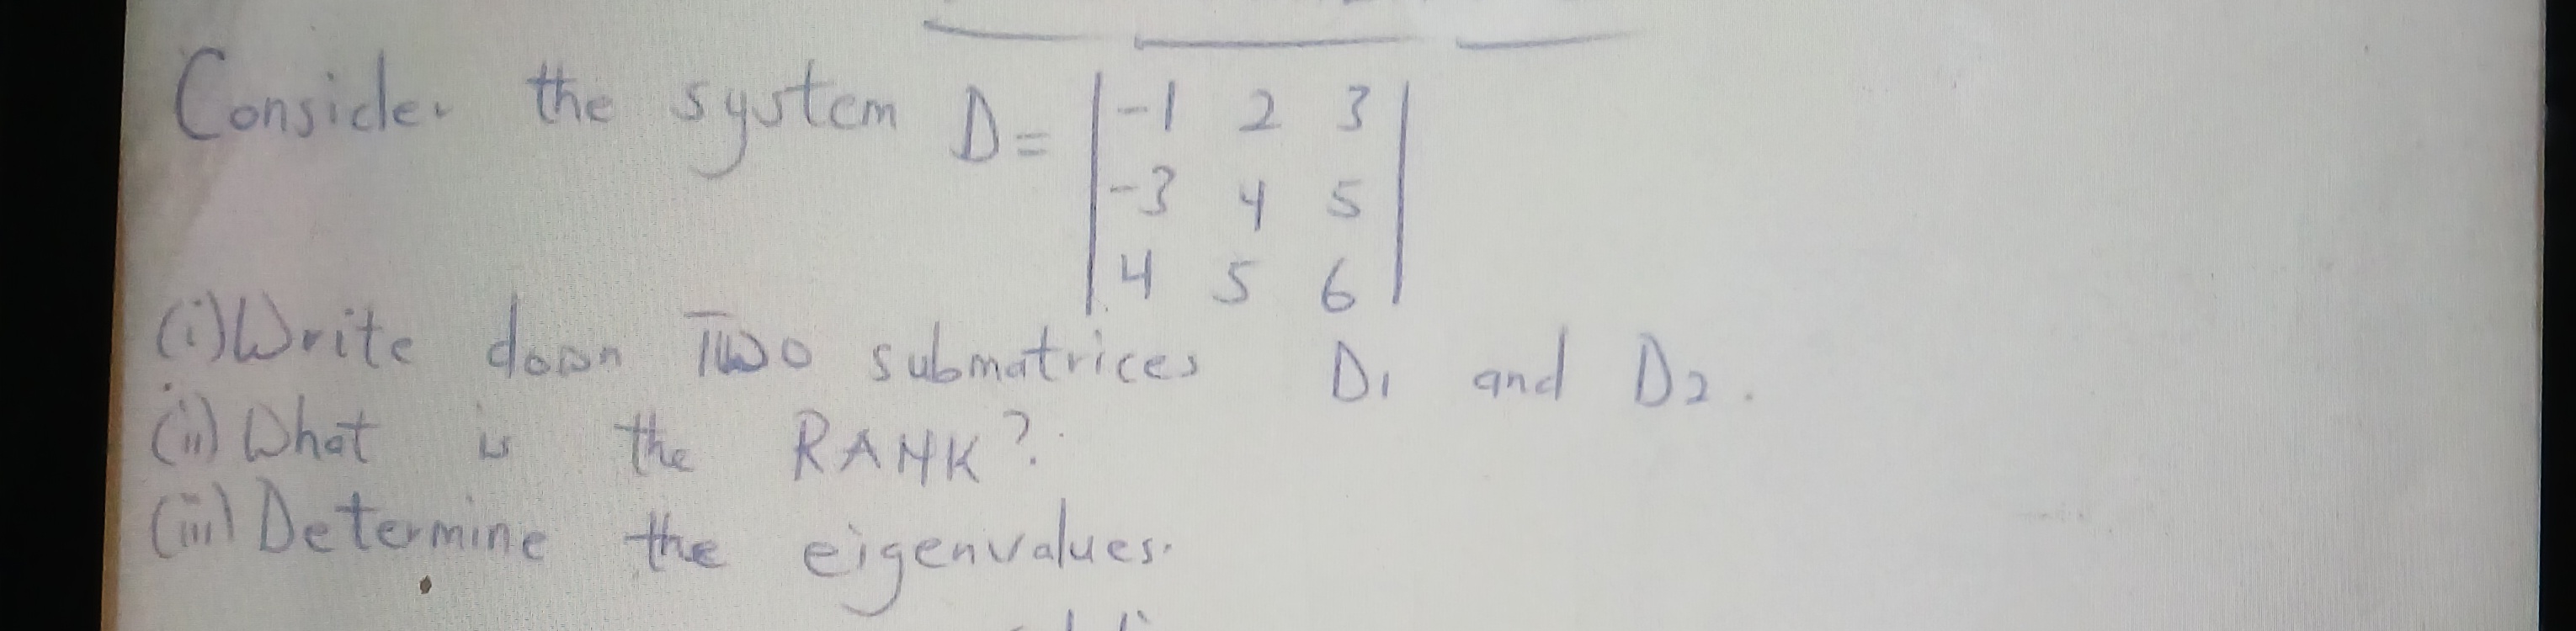 Consider the system D = | -1 2 3 |
| -3 4 5 |
| 4 5 6 |
(i) Write down TWO submatrices D1 and D2.
(ii) What is the RANK?
(iii) Determine the eigenvalues.